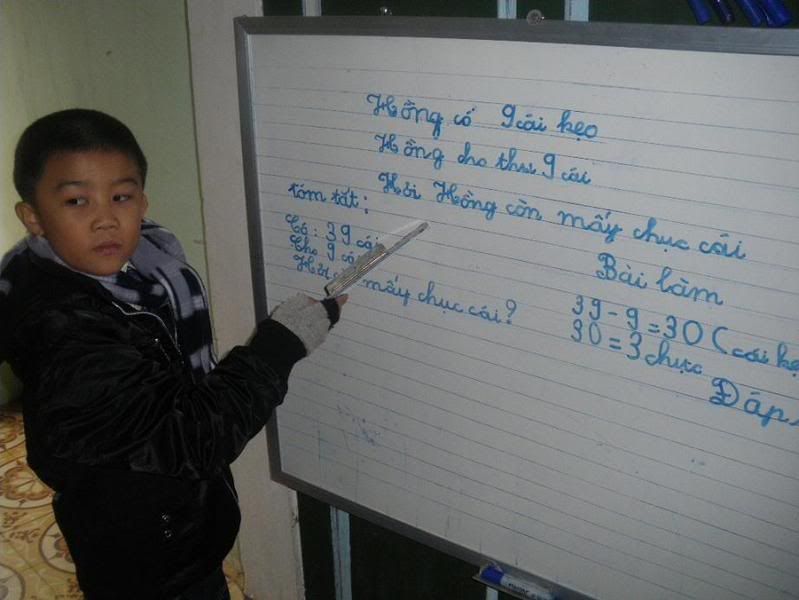 Hồng có 9 cái kẹo
Hồng cho thu 9 cái
Hỏi Hồng còn mấy chục cái
tóm tắt:
Có: 39 cái
Cho 9 cái
Hỏi mấy chục cái?
Bài làm
39 - 9 = 30 (cái kẹ
30 = 3 chục
Đáp